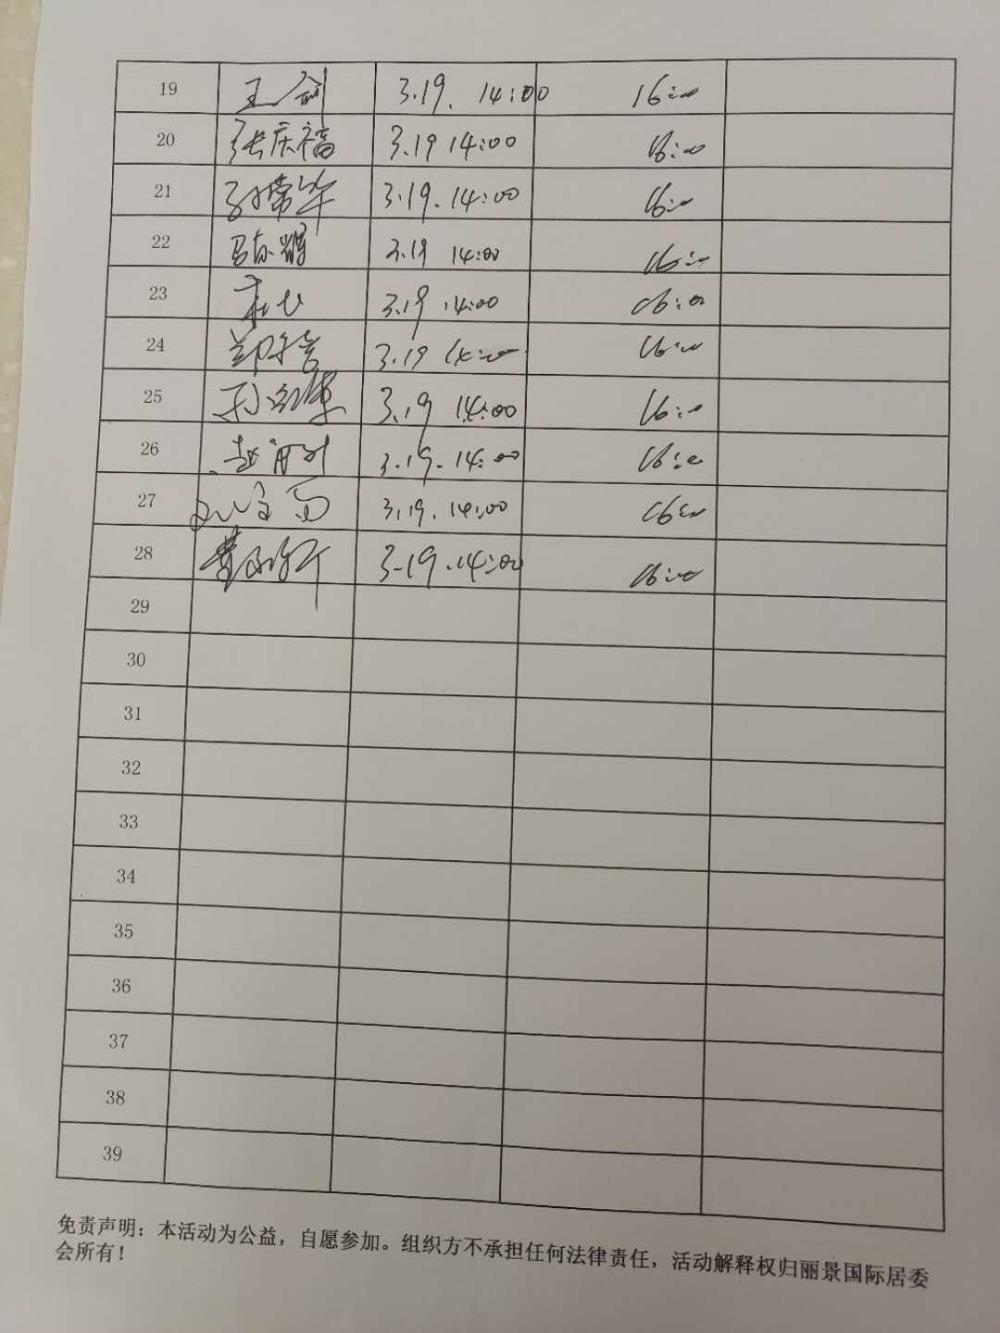 19 王剑 3.19. 14:00 16:00
20 张庆福 3.19 14:00 16:00
21 孙常华 3.19. 14:00 16:00
22 3.19 14:00 16:00
23 3.19 14:00 16:00
24 3.19 14:00 16:00
25 3.19 14:00 16:00
26 3.19. 14:00 16:00
27 3.19. 14:00 16:00
28 3.19. 14:00 16:00
29
30
31
32
33
34
35
36
37
38
39
免责声明：本活动为公益，自愿参加。组织方不承担任何法律责任，活动解释权归丽景国际居委
会所有！